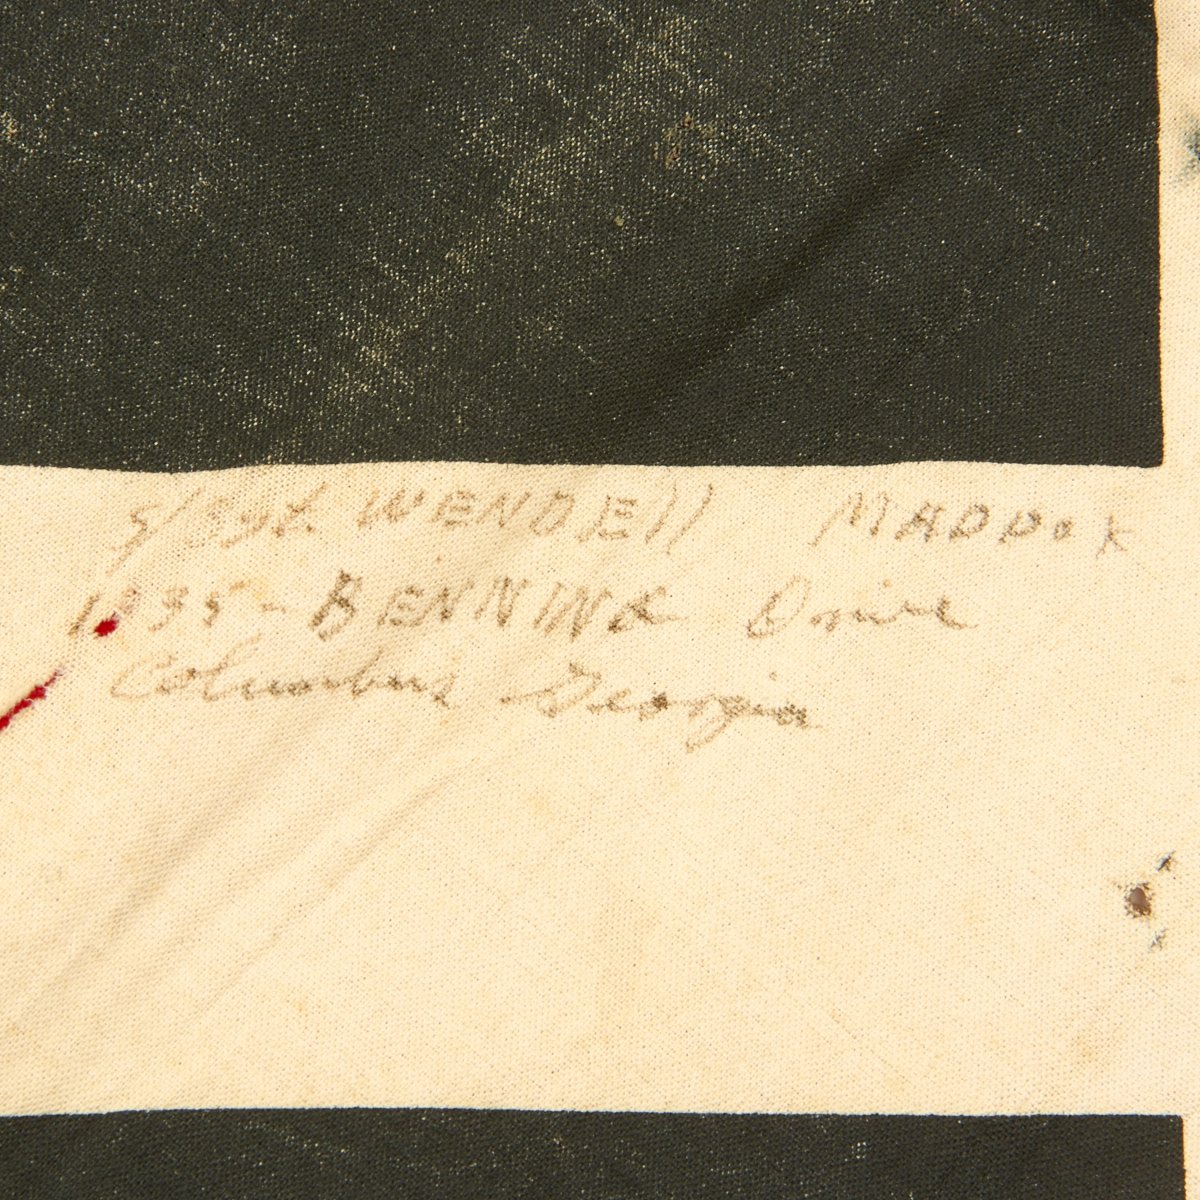 S/Sgt. WENDEll MADDOX
BENNING Drive
Columbus Georgia